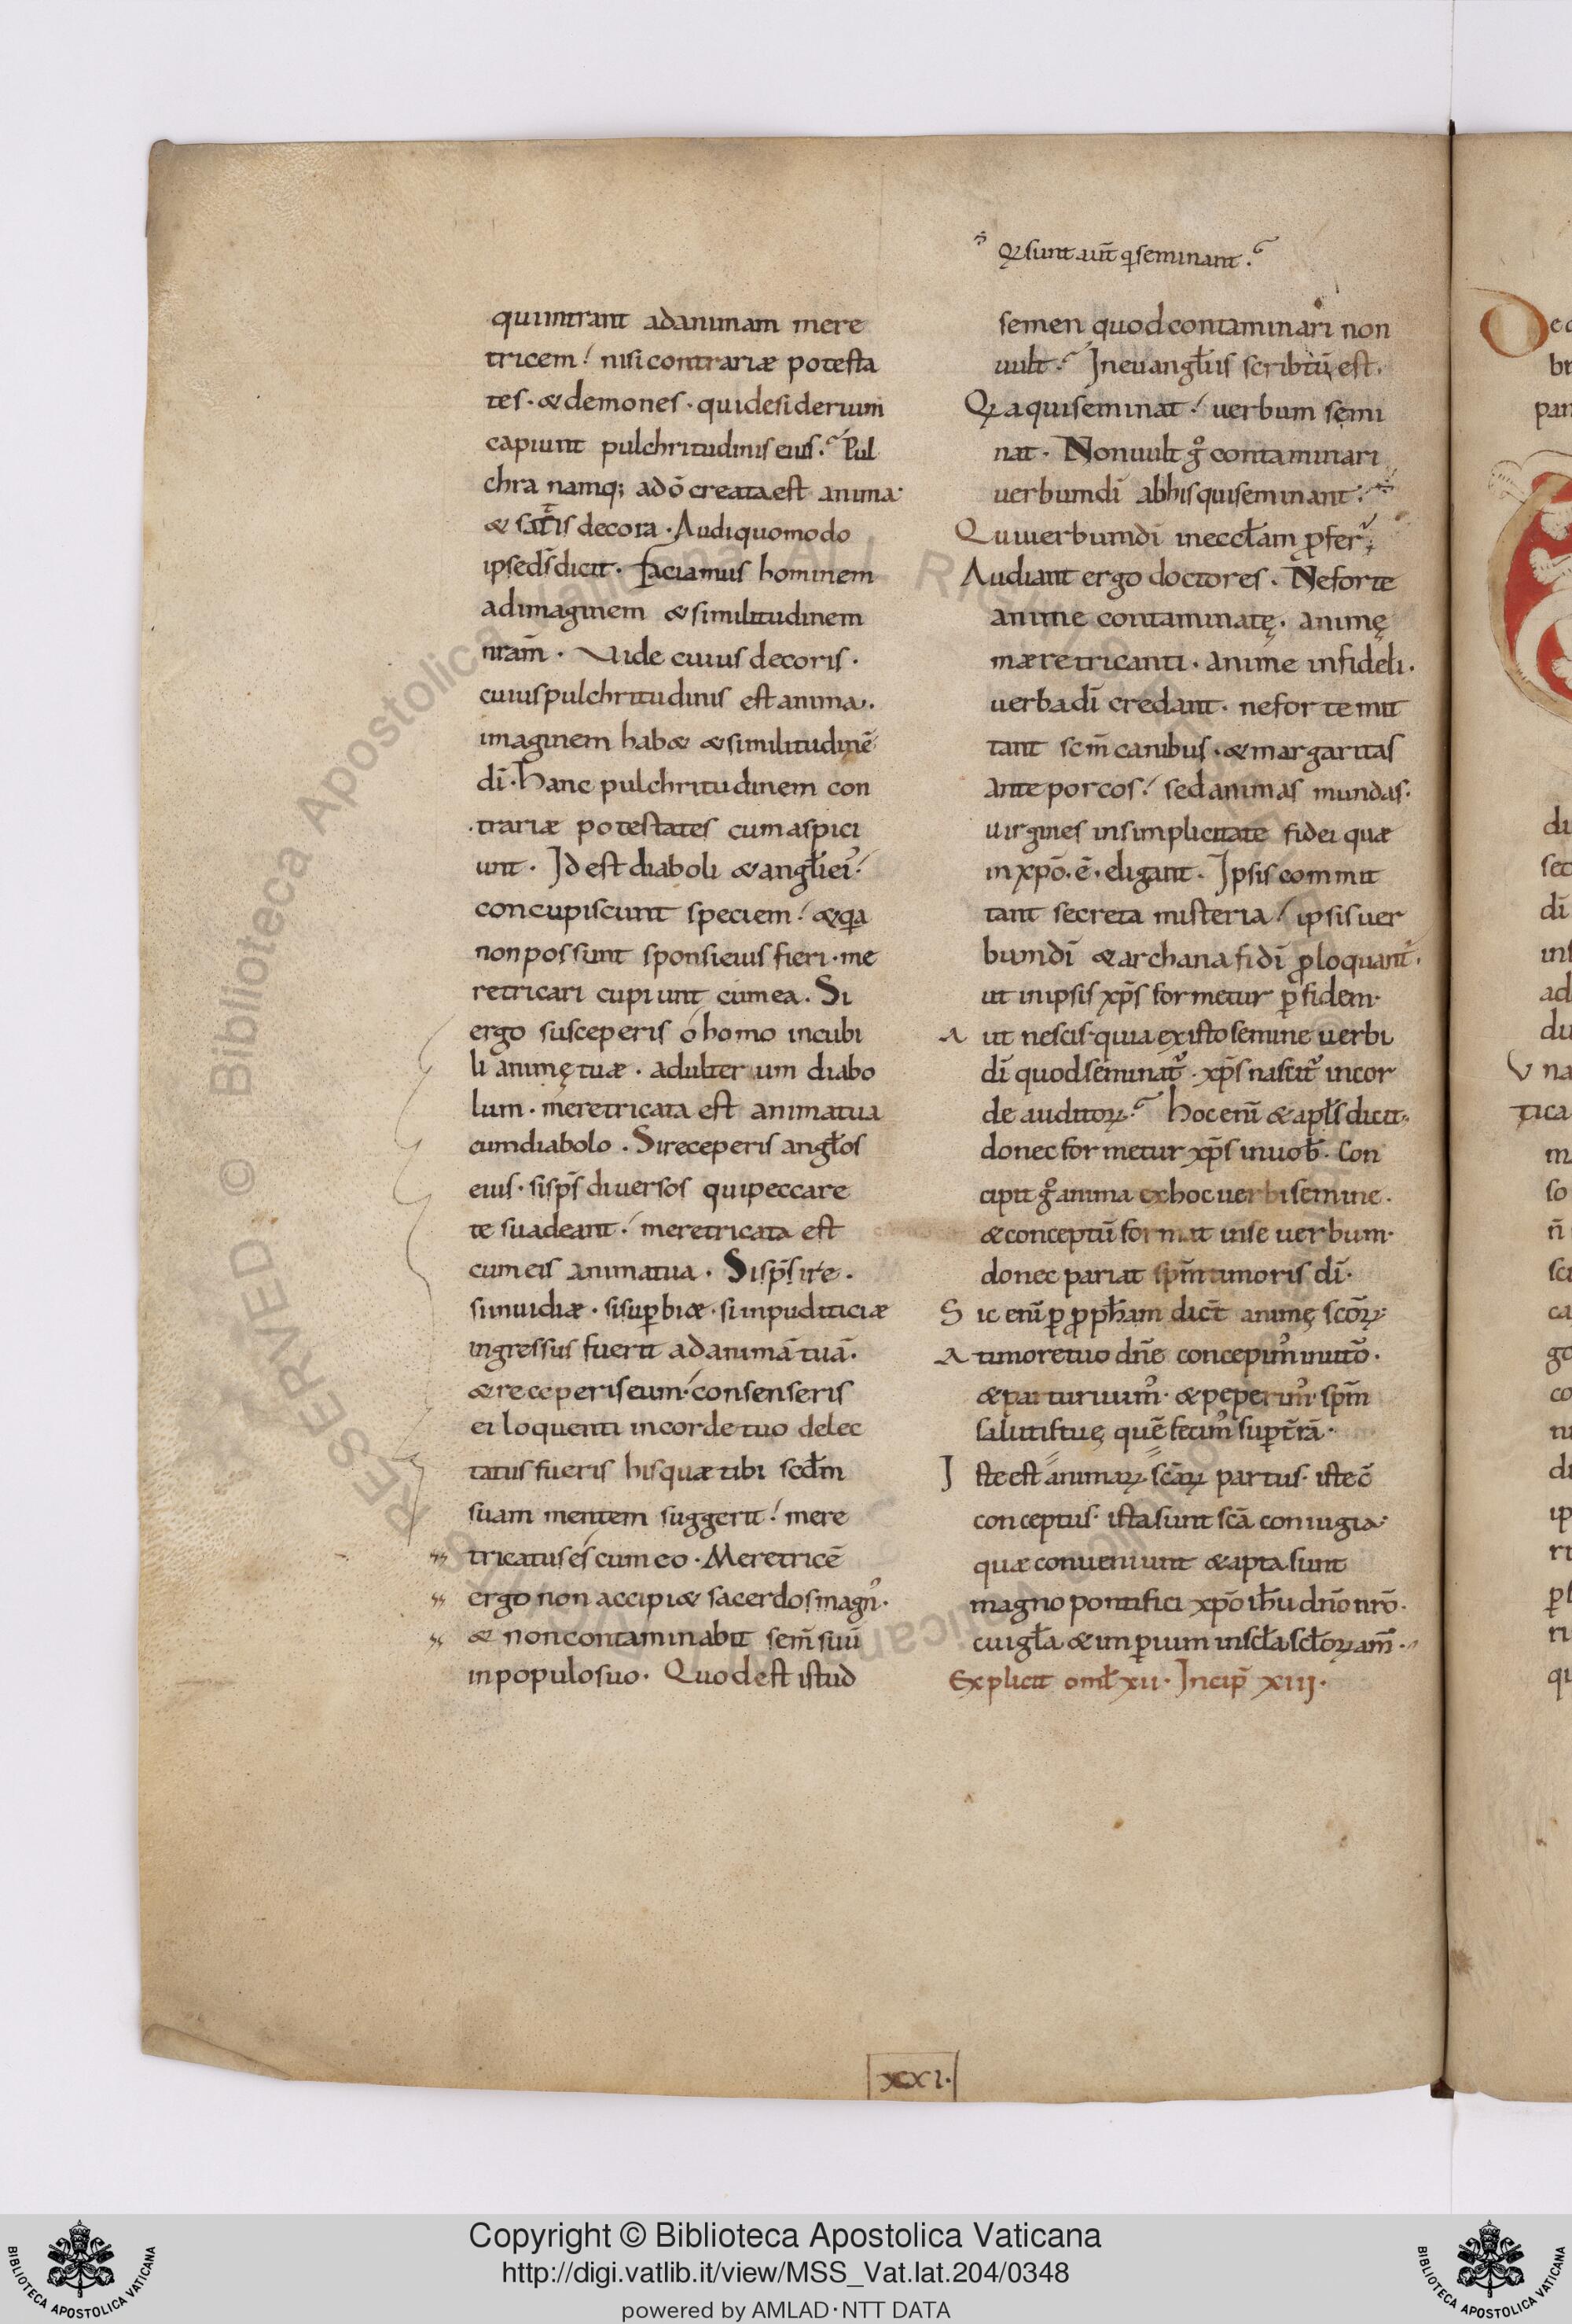 Qꝛ sunt aut̄ q̇ seminant.
qui intrant ad animam mere
tricem. nisi contrariæ potesta
tes. & demones. qui desiderium
capiunt pulchritudinis eius. Pul
chra namq; ad ō creata est anima.
& satis decora. Audi quomodo
ipse ds̄ dicit. Faciamus hominem
ad imaginem & similitudinem
nr̄am. Vide cuius decoris.
cuius pulchritudinis est anima.
imaginem hab& & similitudinē
dī. Hanc pulchritudinem con
trariæ potestates cum aspici
unt. Id est diaboli & angłi ei'.
concupiscunt speciem. & qa
non possunt sponsi eius fieri. me
retricari cupiunt cum ea. Si
ergo susceperis ó homo incubi
li animę tuæ. adulterum diabo
lum. meretricata est anima tua
cum diabolo. Si receperis angłos
eius. si sp̄s diuersos qui peccare
te suadeant. meretricata est
cum eis anima tua. Si sp̄s ire.
si inuidiæ. si suꝑbiæ. si inpuditiciæ
ingressus fuerit ad animā tuā.
& receperis eum. consenseris
ei loquenti in corde tuo delec
tatus fueris his quæ tibi scd̄m
suam mentem suggerit. mere
tricatus és cum eo. Meretricē
ergo non accipi& sacerdos magn'.
& non contaminabit sem̄ suū
in populo suo. Quod est istud
semen quod contaminari non
uult. In euangłiis scribtū est.
Qꝛa qui seminat. uerbum semi
nat. Non uult g° contaminari
uerbum dī ab his qui seminant.
Qui uerbum dī in eccłam ꝓfer
Audiant ergo doctores. Ne forte
anime contaminatę. animę
mæretricanti. anime infideli.
uerba dī credant. ne forte mit
tant scm̄ canibus. & margaritas
ante porcos. sed animas mundas.
uirgines in simplicitate fidei quæ
in xp̄o. ē. eligant. Ipsis commit
tant secreta misteria. ipsis uer
bum dī & archana fidī ꝓloquant.
ut in ipsis xp̄s formetur ꝑ fidem.
A ut nescis quia ex isto semine uerbi
dī quod seminat̄. xp̄s nascit̄ in cor
de auditoꝝ. Hoc enī & apłs dicit.
donec formetur xp̄s in uob̄. Con
cipit g° anima ex hoc uerbi semine.
& conceptū format in se uerbum.
donec pariat sp̄m timoris dī.
Sic enī ꝑ ꝓph̄am dicit̄ animę scōꝝ.
A timore tuo dn̄e concepim' in utō.
& parturiuim'. & peperim' sp̄m
salutis tuę, quē fecim' suꝑ t̄rā.
Iste est animaꝝ scāꝝ partus. iste ē
conceptus. ista sunt scā coniugia.
quæ conueniunt & apta sunt
magno pontifici xp̄o ih̄u dn̄o nr̄o.
cui gła & imꝑium in scła scłoꝝ am̄.
Explicit omł xii. Incip̄ xiii.
xxxi.
Copyright © Biblioteca Apostolica Vaticana
http://digi.vatlib.it/view/MSS_Vat.lat.204/0348
powered by AMLAD·NTT DATA
BIBLIOTECA APOSTOLICA VATICANA
BIBLIOTECA APOSTOLICA VATICANA